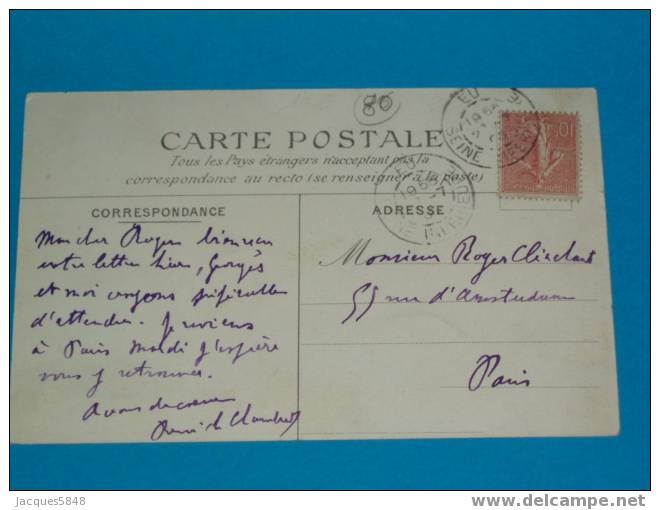 80
CARTE POSTALE
Tous les Pays étrangers n'acceptant pas la
correspondance au recto (se renseigner à la poste)
CORRESPONDANCE
ADRESSE
Mon cher Roger
votre lettre hier, Georges
et moi
d'attendre. Je reviens
à Paris Mardi j'espère
vous y retrouver.
Monsieur Roger
55 rue d'Amsterdam
Paris
EU
SEINE
10
Jacques5848
delcampe.net